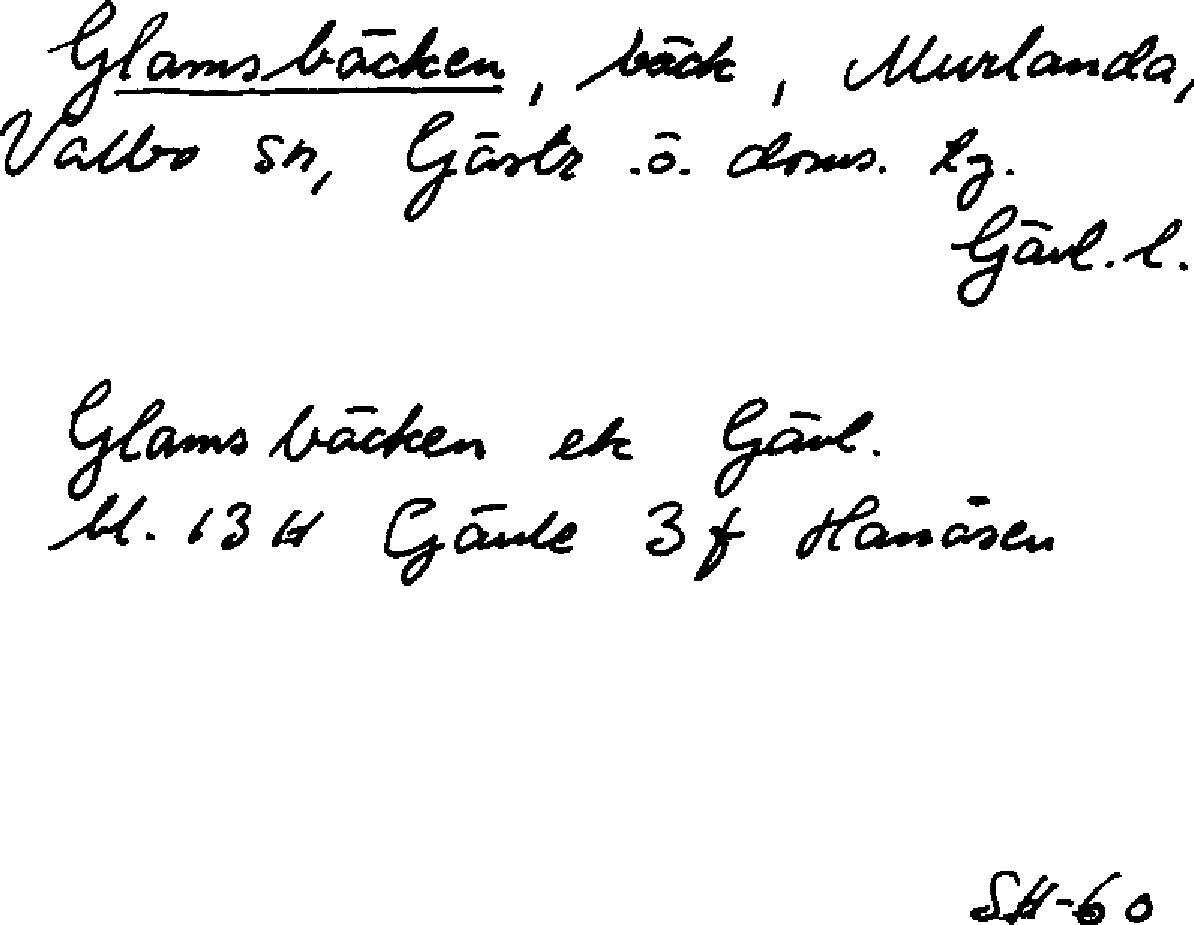 Glamsbäcken, bäck, Murlanda,
Valbo sn, Gästr.ö. doms. tg.
Gävl. l.
Glamsbäcken ek Gävl.
bl. 13 H Gävle 3 f Hanåsen
SH-60